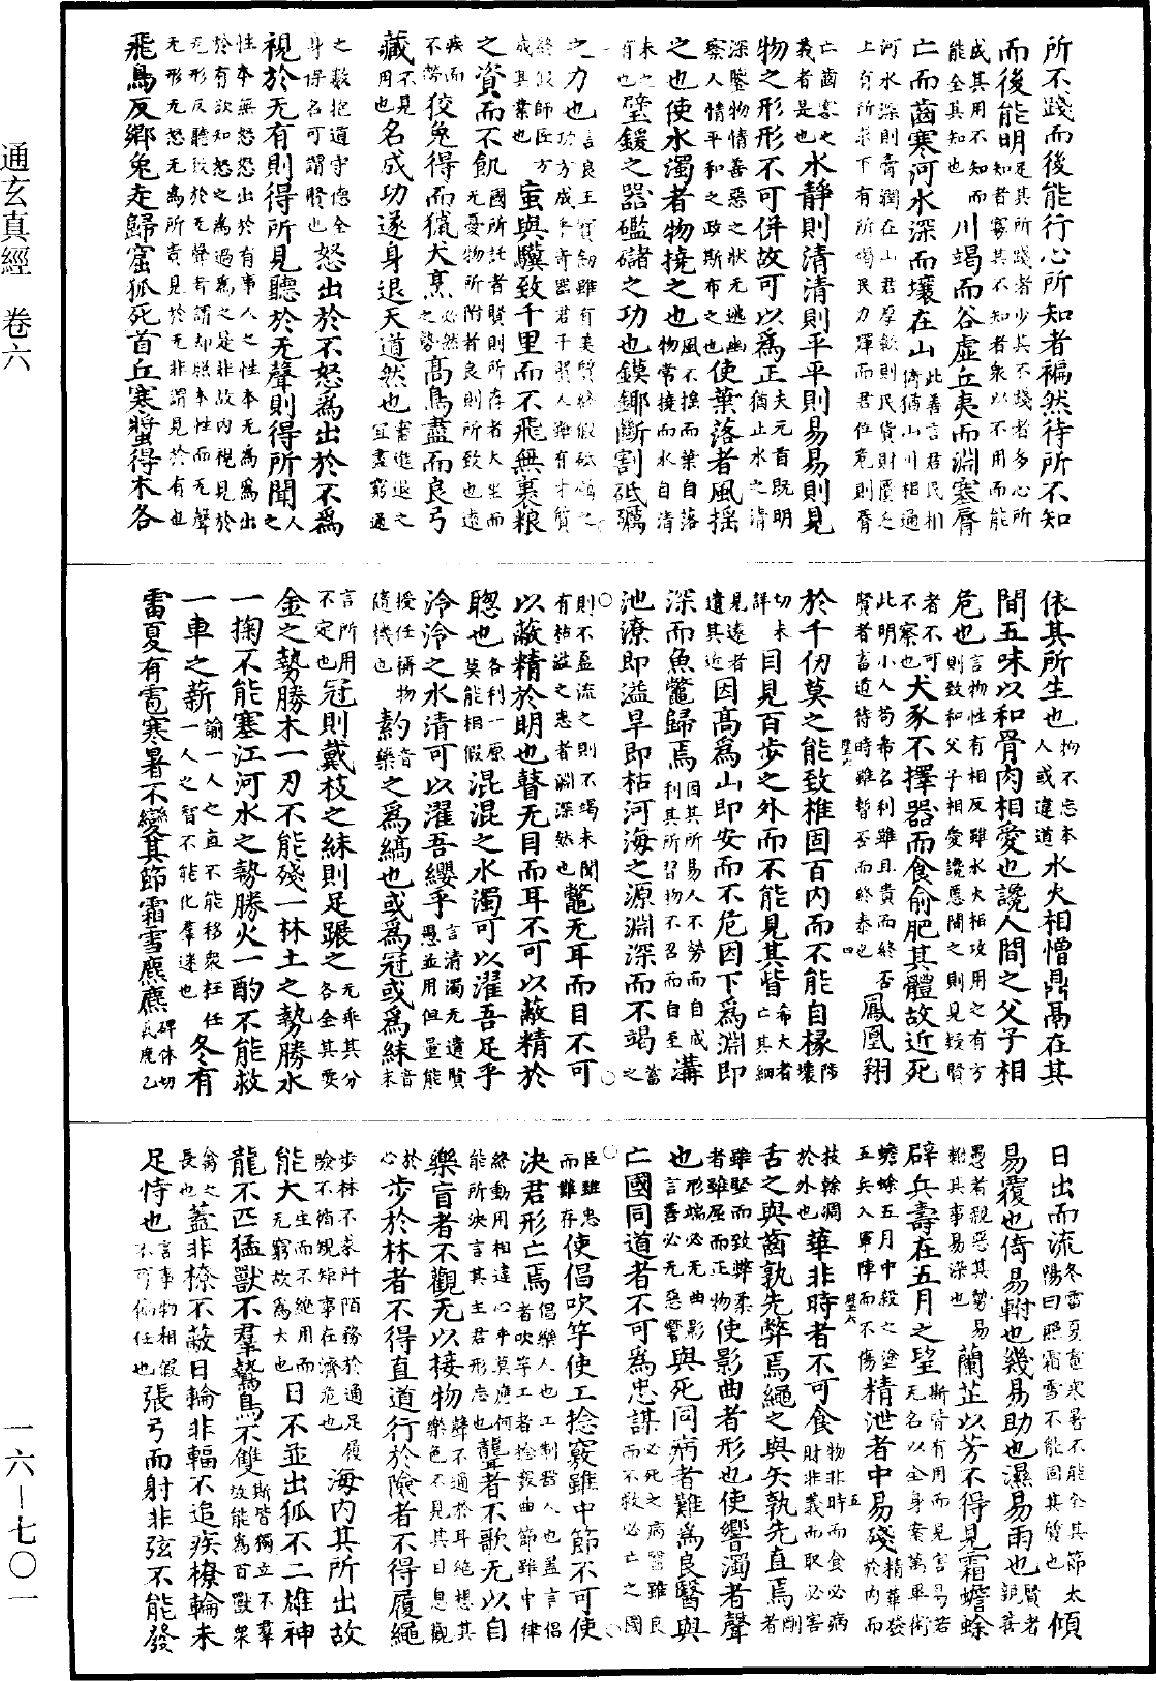 所不踐而後能行心所知者褊然待所不知
而後能明足其所踐者少其不踐者多心所知者寡其不知者衆以不用而能
成其用不知而能全其知也川竭而谷虛丘夷而淵塞脣
亡而齒寒河水深而壤在山此善言君民相倚猶山川相通
河水深則膏潤在山君厚斂則民貨財匱乏上有所求下有所竭民力殫而君位危則脣
亡齒寒之義者是也水靜則清清則平平則易易則見
物之形形不可併故可以爲正夫元首既明猶止水之清
深鑒物情善惡之狀无逃幽察人情平和之政斯布之也使葉落者風搖
之也使水濁者物撓之也風不搖而葉自落物常撓而水自清
未之有也璧鍰之器礛䃴之功也鏌鎁斷割砥礪
之力也言良玉寶劒雖有美質終假砥礪之功方成乎奇器君子賢人雖有才質
終假師匠方成其業也䖟與驥致千里而不飛無裹粮
之資而不飢國所託者賢則所存者大坐而无憂物所附者良則所致也遠
疾而不勞狡兔得而獵犬烹必然之勢高鳥盡而良弓
藏不見用也名成功遂身退天道然也審進退之宜盡窮通
之數抱道守德全身保名可謂賢也怒出於不怒爲出於不爲
視於无有則得所見聽於无聲則得所聞人之
性本無怒怒出於有事人之性本无爲爲出於有欲知怒之爲過爲之是非故內視見於
无形反聽致於无聲者謂却照本性而无聲无形无怒无爲所責見於无非謂見於有也
飛鳥反鄉兔走歸窟狐死首丘寒螿得木各
依其所生也物不忘本人或違道水火相憎鼎鬲在其
間五味以和骨肉相愛也讒人間之父子相
危也言物性有相反雖水火相攻用之有方則致和父子相愛讒惡間之則見疑賢
者不可不察也犬豕不擇器而食俞肥其體故近死
此明小人苟希名利雖且貴而終否賢者畜道待時雖暫否而終泰也鳳凰翔
於千仞莫之能致椎固百内而不能自椓階壤
切未詳目見百步之外而不能見其眥希大者亡其細
見遠者遺其近因高爲山即安而不危因下爲淵即
深而魚鼈歸焉因其所易人不勞而自成利其所習物不召而自至溝
池潦即溢旱即枯河海之源淵深而不竭畜之
則不盈流之則不竭未聞有枯溢之患者淵深然也鼈无耳而目不可
以蔽精於明也瞽无目而耳不可以蔽精於
聦也各利一原莫能相假混混之水濁可以濯吾足乎
泠泠之水清可以濯吾纓乎言清濁无遺賢愚並用但量能
授任稱物隨機也䋤音藥之爲縞也或爲冠或爲絑音末
言所用不定也冠則戴枝之絑則足蹍之无乖其分各全其要
金之勢勝木一刃不能殘一林土之勢勝水
一掬不能塞江河水之勢勝火一酌不能救
一車之薪諭一人之直不能移衆枉任一人之智不能化羣迷也冬有
雷夏有雹寒暑不變其節霜雪麃麃
日出而流冬雷夏雹寒暑不能全其節太陽曰照霜雪不能固其質也傾
易覆也倚易軵也幾易助也濕易雨也賢者親善
愚者親惡其勢易軵其事易染也蘭芷以芳不得見霜蟾蜍
辟兵壽在五月之望斯皆有用而見害曷若无名以全身案萬畢術
蟾蜍五月中殺之塗五兵入軍陣而不傷精泄者中易殘精華發於內而
枝幹凋於外也華非時者不可食物非時而食必病財非義而取必害
舌之與齒孰先弊焉繩之與矢孰先直焉剛者
雖堅而致弊柔者雖屈而正物使影曲者形也使響濁者聲
也形端必无曲影言善必无惡響與死同病者難爲良醫與
亡國同道者不可爲忠謀必死之病醫雖良而不救必亡之國
臣雖忠而難存使倡吹竽使工捻竅雖中節不可使
決君形亡焉倡樂人也工制器人也蓋言倡者吹竽工者捻竅曲節雖中律
終動用相違心乎莫應何能所決言其主君形亡也聾者不歌无以自
樂盲者不觀无以接物聲不通於耳絕想其樂色不見其目息觀
於心步於林者不得直道行於險者不得履繩
步林不求阡陌務於適足履險不循規矩事在濟危也海內其所出故
能大生而不絕用而无窮故爲大也日不並出狐不二雄神
龍不匹猛獸不羣鷙鳥不雙斯皆獨立不羣故能爲百獸衆
禽之長也蓋非橑不蔽日輪非輻不追疾橑輪未
足恃也言事物相假不可偏任也張弓而射非弦不能發
通玄真經　卷六
一六—七〇一